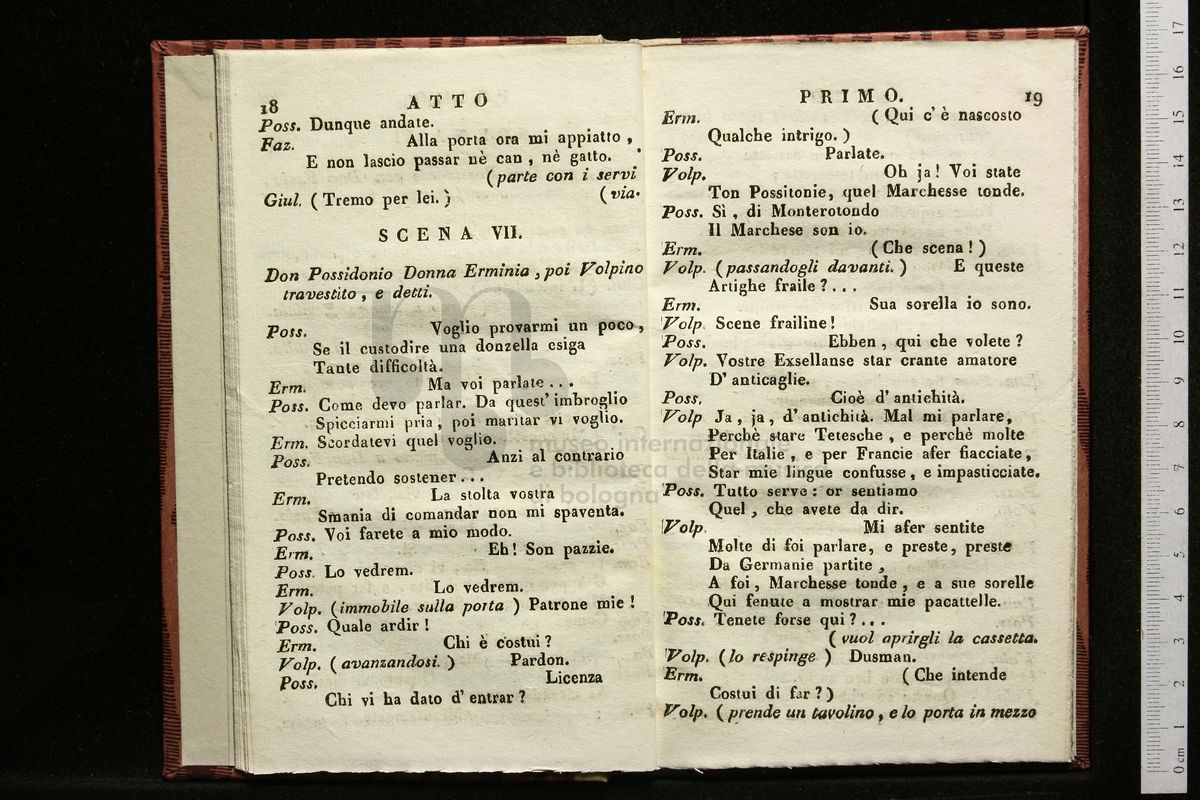 18 ATTO
Poss. Dunque andate.
Faz. Alla porta ora mi appiatto,
E non lascio passar nè can, nè gatto.
(parte con i servi
Giul. (Tremo per lei.) (via.
SCENA VII.
Don Possidonio Donna Erminia, poi Volpino
travestito, e detti.
Poss. Voglio provarmi un poco,
Se il custodire una donzella esiga
Tante difficoltà.
Erm. Ma voi parlate...
Poss. Come devo parlar. Da quest' imbroglio
Spicciarmi pria, poi maritar vi voglio.
Erm. Scordatevi quel voglio.
Poss. Anzi al contrario
Pretendo sostener...
Erm. La stolta vostra
Smania di comandar non mi spaventa.
Poss. Voi farete a mio modo.
Erm. Eh! Son pazzie.
Poss. Lo vedrem.
Erm. Lo vedrem.
Volp. (immobile sulla porta) Patrone mie!
Poss. Quale ardir!
Erm. Chi è costui?
Volp. (avanzandosi.) Pardon.
Poss. Licenza
Chi vi ha dato d' entrar?
PRIMO. 19
Erm. (Qui c' è nascosto
Qualche intrigo.)
Poss. Parlate.
Volp. Oh ja! Voi state
Ton Possitonie, quel Marchesse tonde.
Poss. Sì, di Monterotondo
Il Marchese son io.
Erm. (Che scena!)
Volp. (passandogli davanti.) E queste
Artighe fraile?...
Erm. Sua sorella io sono.
Volp. Scene frailine!
Poss. Ebben, qui che volete?
Volp. Vostre Exsellanse star crante amatore
D' anticaglie.
Poss. Cioè d' antichità.
Volp Ja, ja, d' antichità. Mal mi parlare,
Perchè stare Tetesche, e perchè molte
Per Italie, e per Francie afer fiacciate,
Star mie lingue confusse, e impasticciate.
Poss. Tutto serve: or sentiamo
Quel, che avete da dir.
Volp. Mi afer sentite
Molte di foi parlare, e preste, preste
Da Germanie partite,
A foi, Marchesse tonde, e a sue sorelle
Qui fenute a mostrar mie pacattelle.
Poss. Tenete forse qui?...
(vuol aprirgli la cassetta.
Volp. (lo respinge) Dusman.
Erm. (Che intende
Costui di far?)
Volp. (prende un tavolino, e lo porta in mezzo
museo internazionale
e biblioteca della musica
di bologna
0 cm 1 2 3 4 5 6 7 8 9 10 11 12 13 14 15 16 17